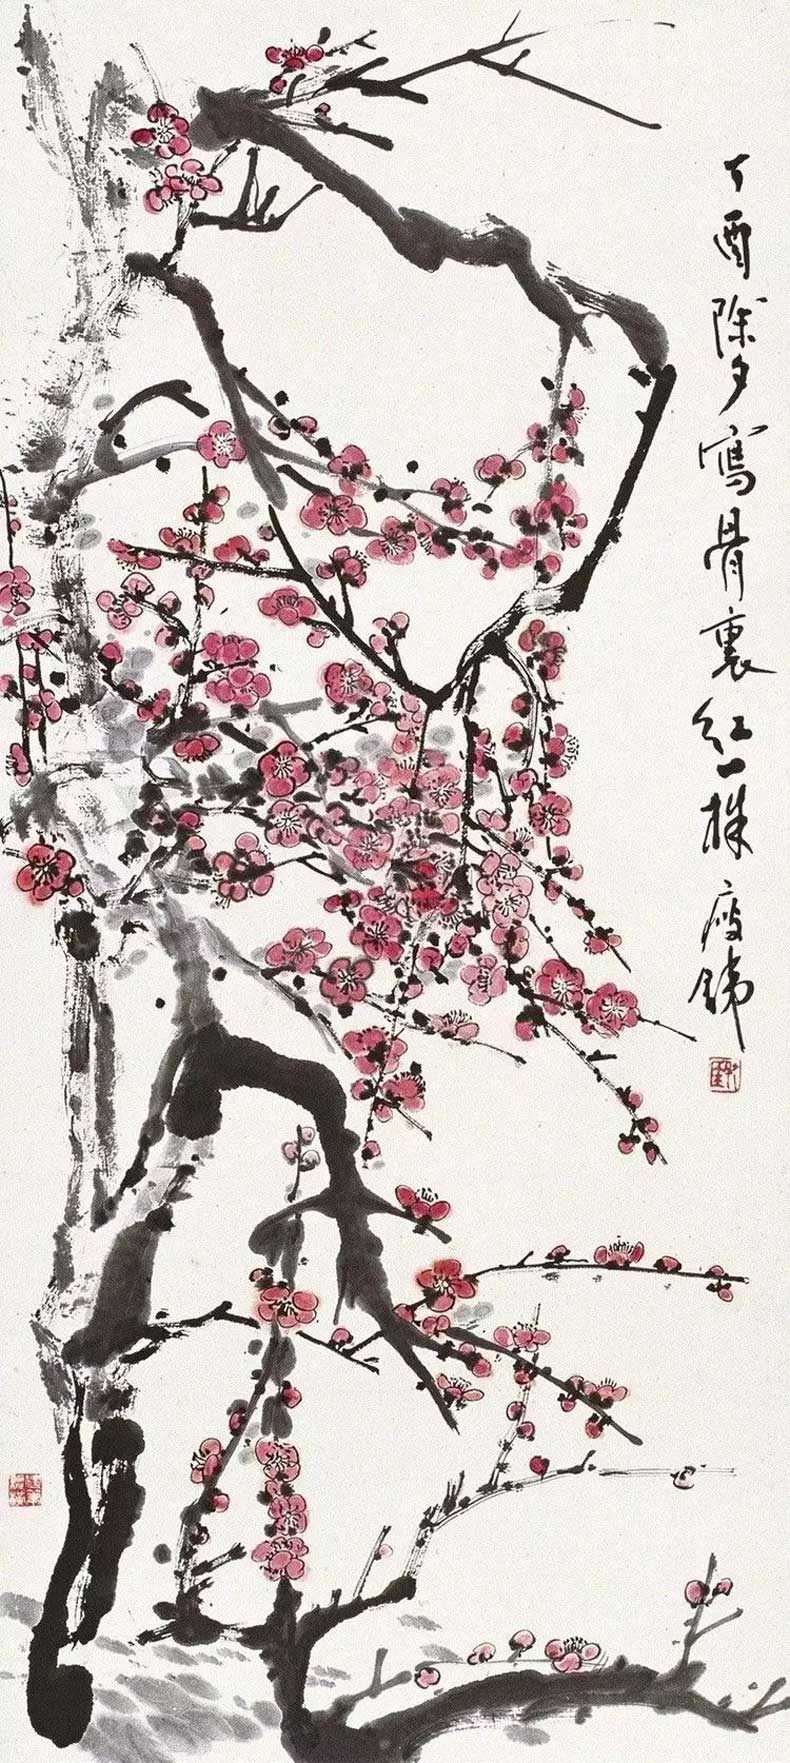 丁酉除夕寫骨裏紅一株瘦鐵